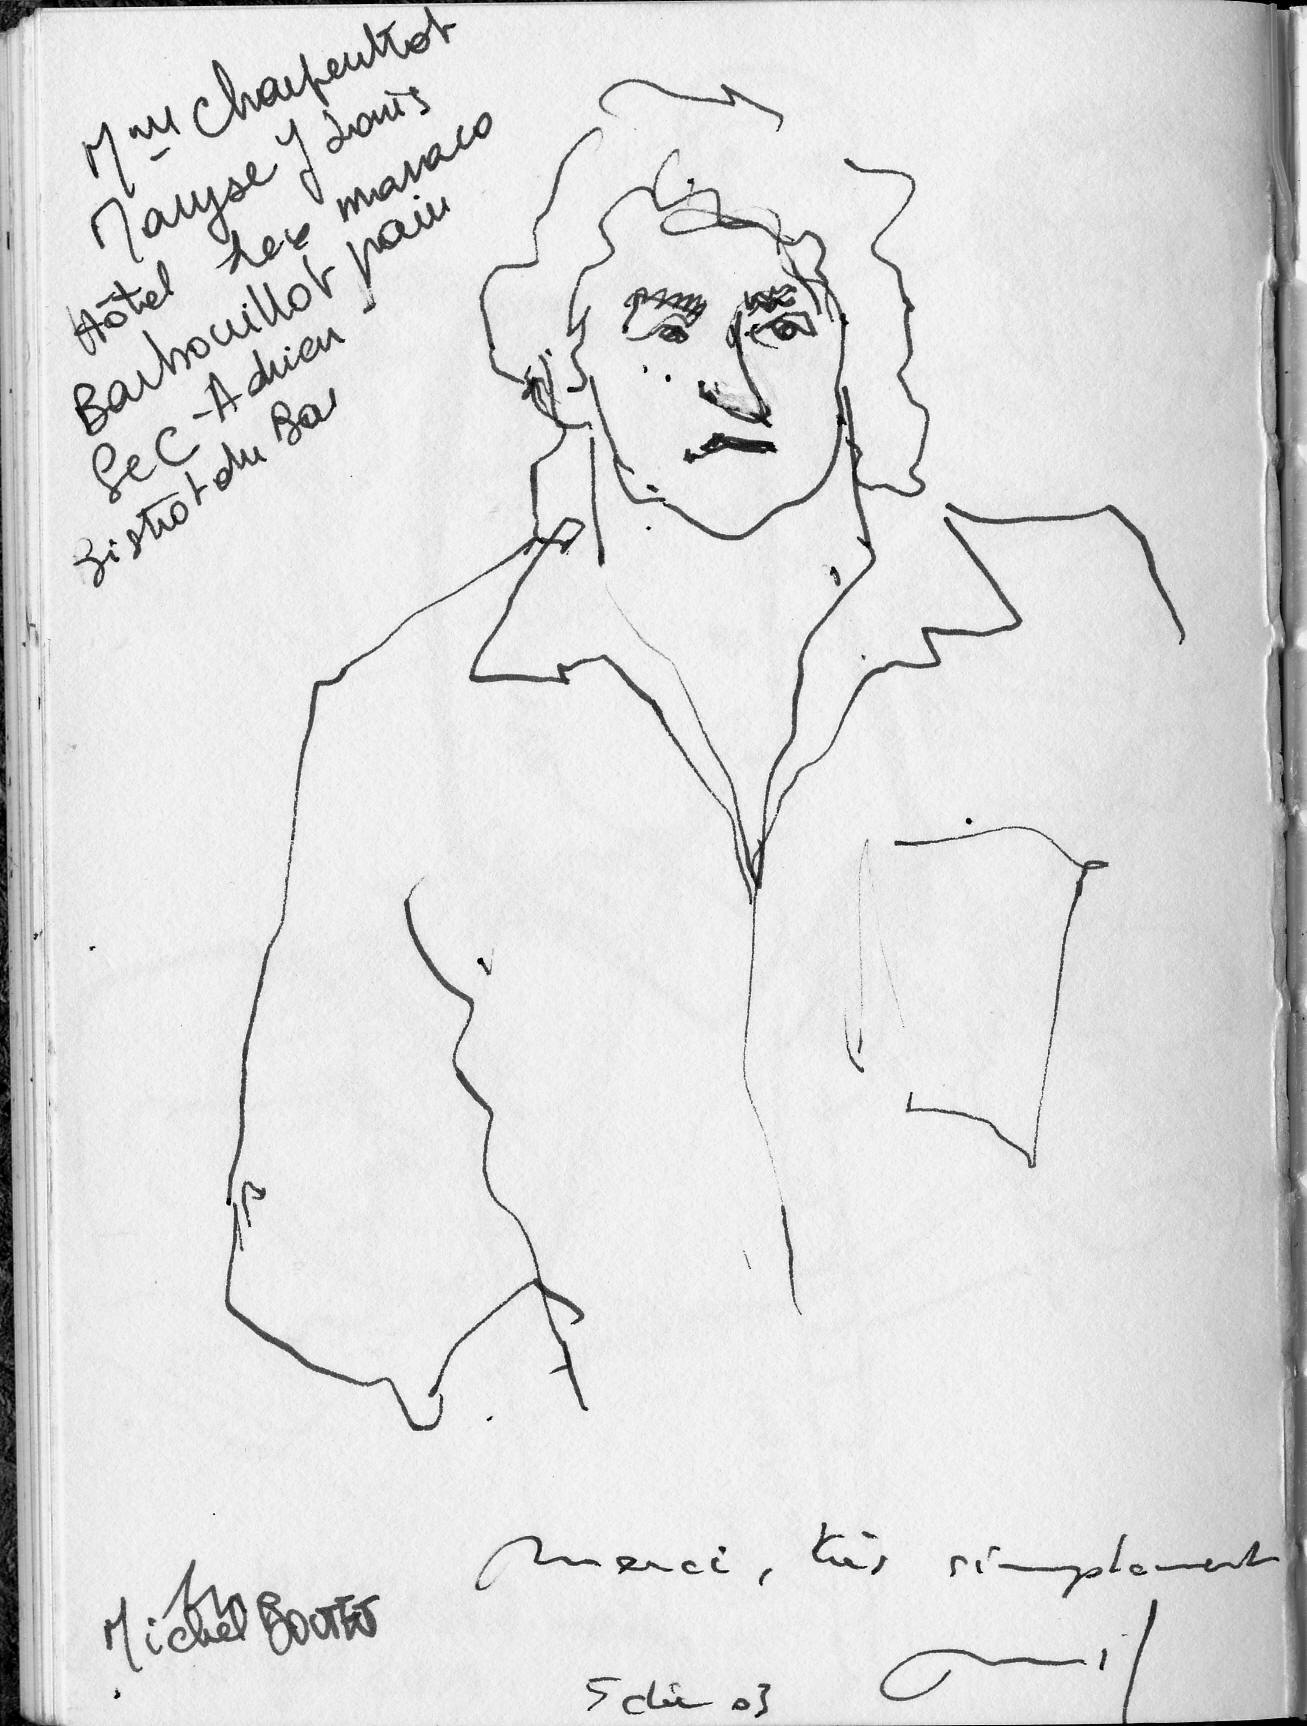 Mme Charpentrot
Maryse J Louis
Hôtel Lex monaco
Barbouillot pain
Se C - Adrien -
Bistrot du Bar
merci, très simplement
Michel BOUTET
5 déc 03